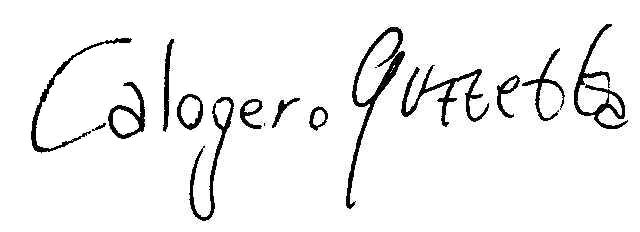 Calogero Guzzetta